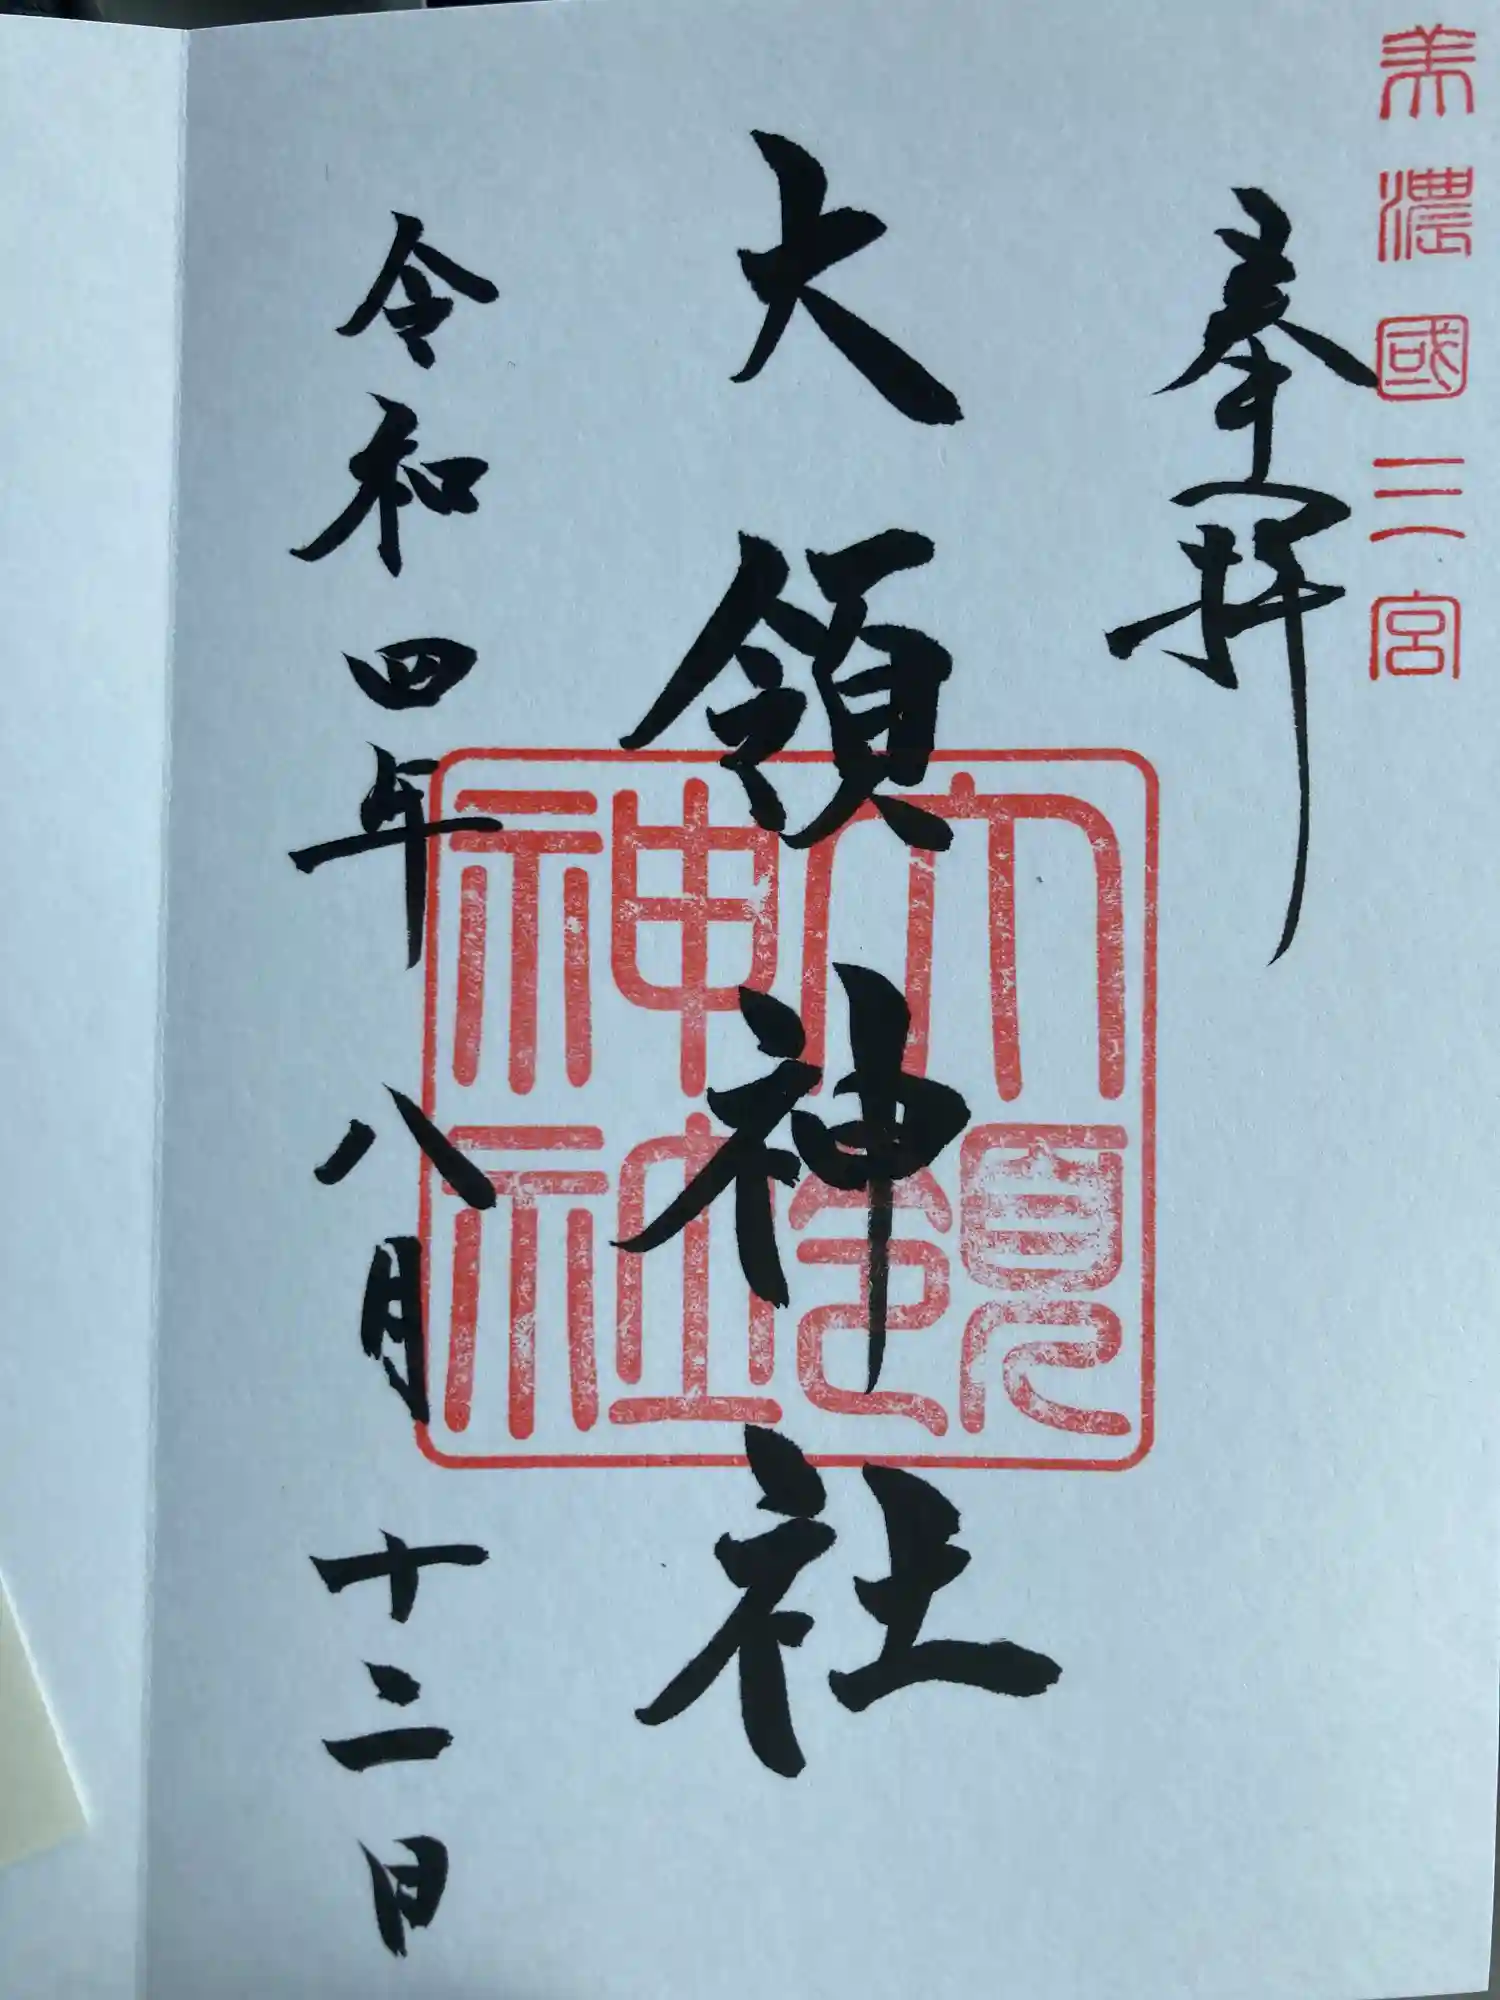 美濃國三宮
奉拝
大領神社
大領神社
令和四年八月十二日